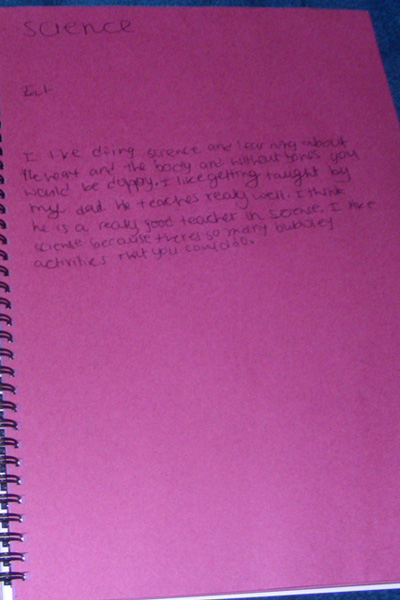 Science
I like doing science and learning about
the heart and the body and without bones you
would be floppy. I like getting taught by
my dad. He teaches really well. I think
he is a really good teacher in science. I like
science because theres so many bubbley
activities that you could do.